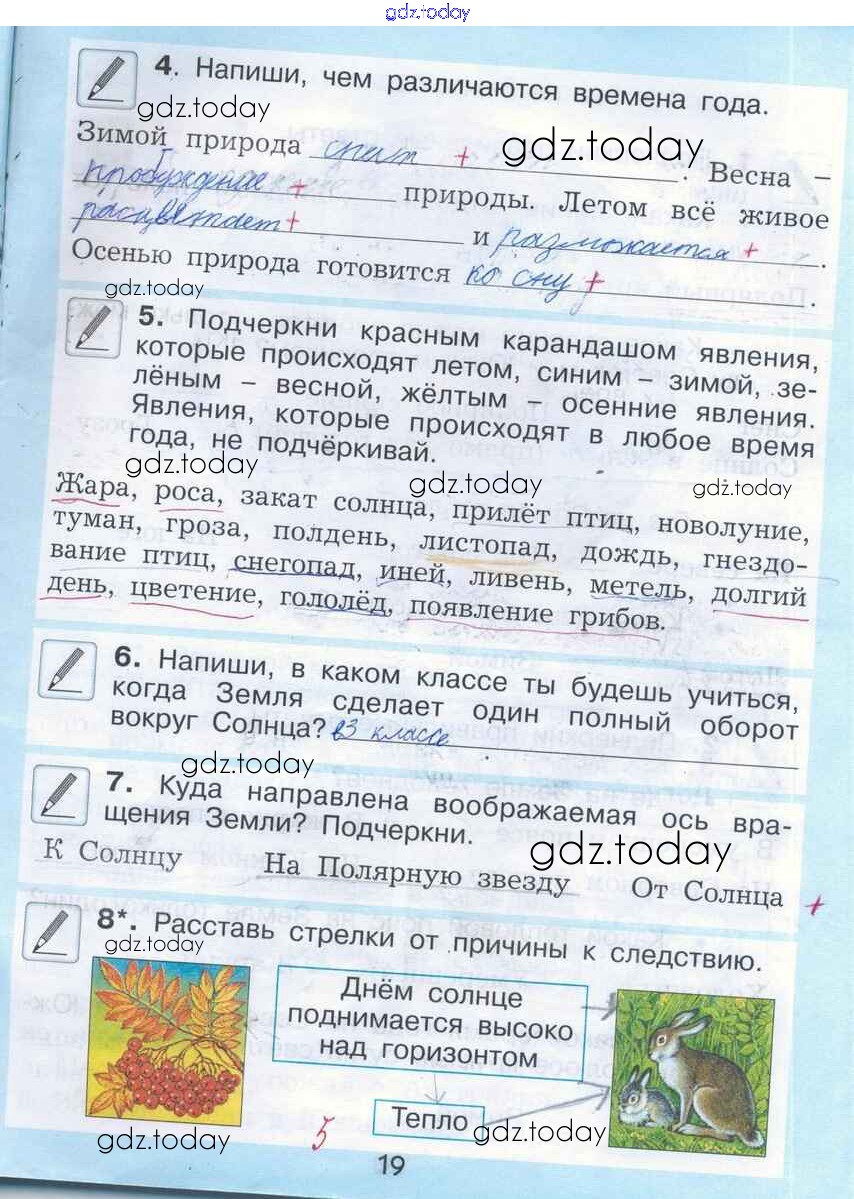 gdz.today
4. Напиши, чем различаются времена года.
gdz.today
gdz.today
Зимой природа спит + . Весна –
пробуждение + природы. Летом всё живое
расцветает + и размножается + .
Осенью природа готовится ко сну + .
gdz.today
gdz.today
5. Подчеркни красным карандашом явления,
которые происходят летом, синим – зимой, зе-
лёным – весной, жёлтым – осенние явления.
Явления, которые происходят в любое время
года, не подчёркивай.
gdz.today
gdz.today
gdz.today
Жара, роса, закат солнца, прилёт птиц, новолуние,
туман, гроза, полдень, листопад, дождь, гнездо-
вание птиц, снегопад, иней, ливень, метель, долгий
день, цветение, гололёд, появление грибов.
6. Напиши, в каком классе ты будешь учиться,
когда Земля сделает один полный оборот
вокруг Солнца? в 3 классе
gdz.today
7. Куда направлена воображаемая ось вра-
щения Земли? Подчеркни.
gdz.today
К Солнцу На Полярную звезду От Солнца +
8*. Расставь стрелки от причины к следствию.
gdz.today
gdz.today
Днём солнце
поднимается высоко
над горизонтом
Тепло
gdz.today
gdz.today
5
19